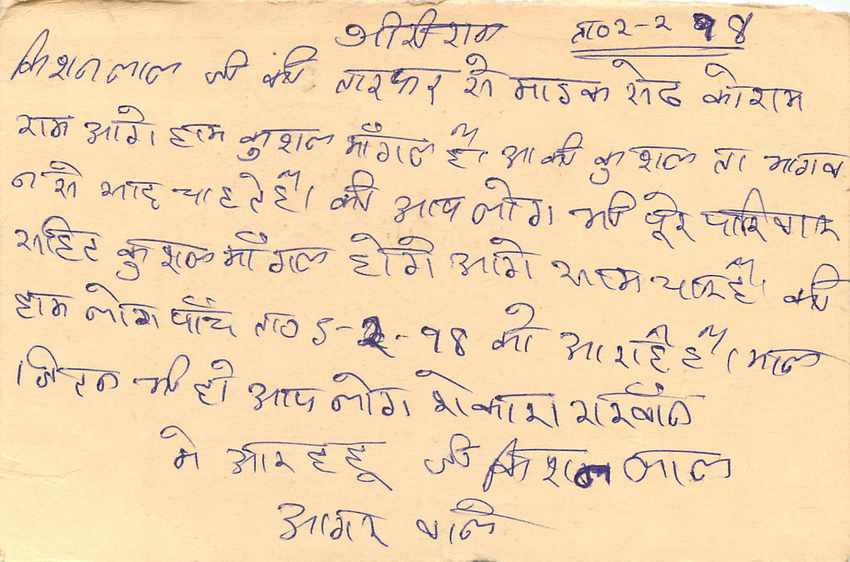 श्री सीराम ता० २-२ ९८
किशनलाल जी की तरफर से माडक सेठ को राम
राम आगे हाम कुशल माँगल है। आ की कुशल ता भागव
न से चाहते है। की आप लोग भी पूरे पारिवार
सहित कुशल माँगल होगे आगे की
हाम लोग पाँच ता० ५-२-९८ को आ राहे है। माल
जितन भी हो आप लोग
मे आर हहू जी किशन लाल
आगर वाले